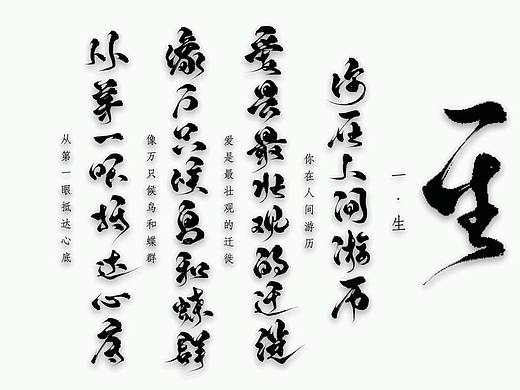 一生
一·生
你在人间游历
你在人间游历
爱是最壮观的迁徙
爱是最壮观的迁徙
像万只候鸟和蝶群
像万只候鸟和蝶群
从第一眼抵达心底
从第一眼抵达心底